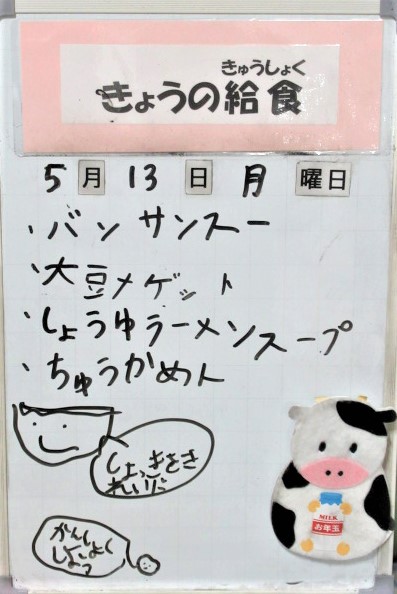 きゅうしょく
きょうの給食
5月13日月曜日
・バンサンスー
・大豆メゲット
・しょうゆラーメンスープ
・ちゅうかめん
しょっきをき
れいに
かんしょく
しよう
MILK
お年玉